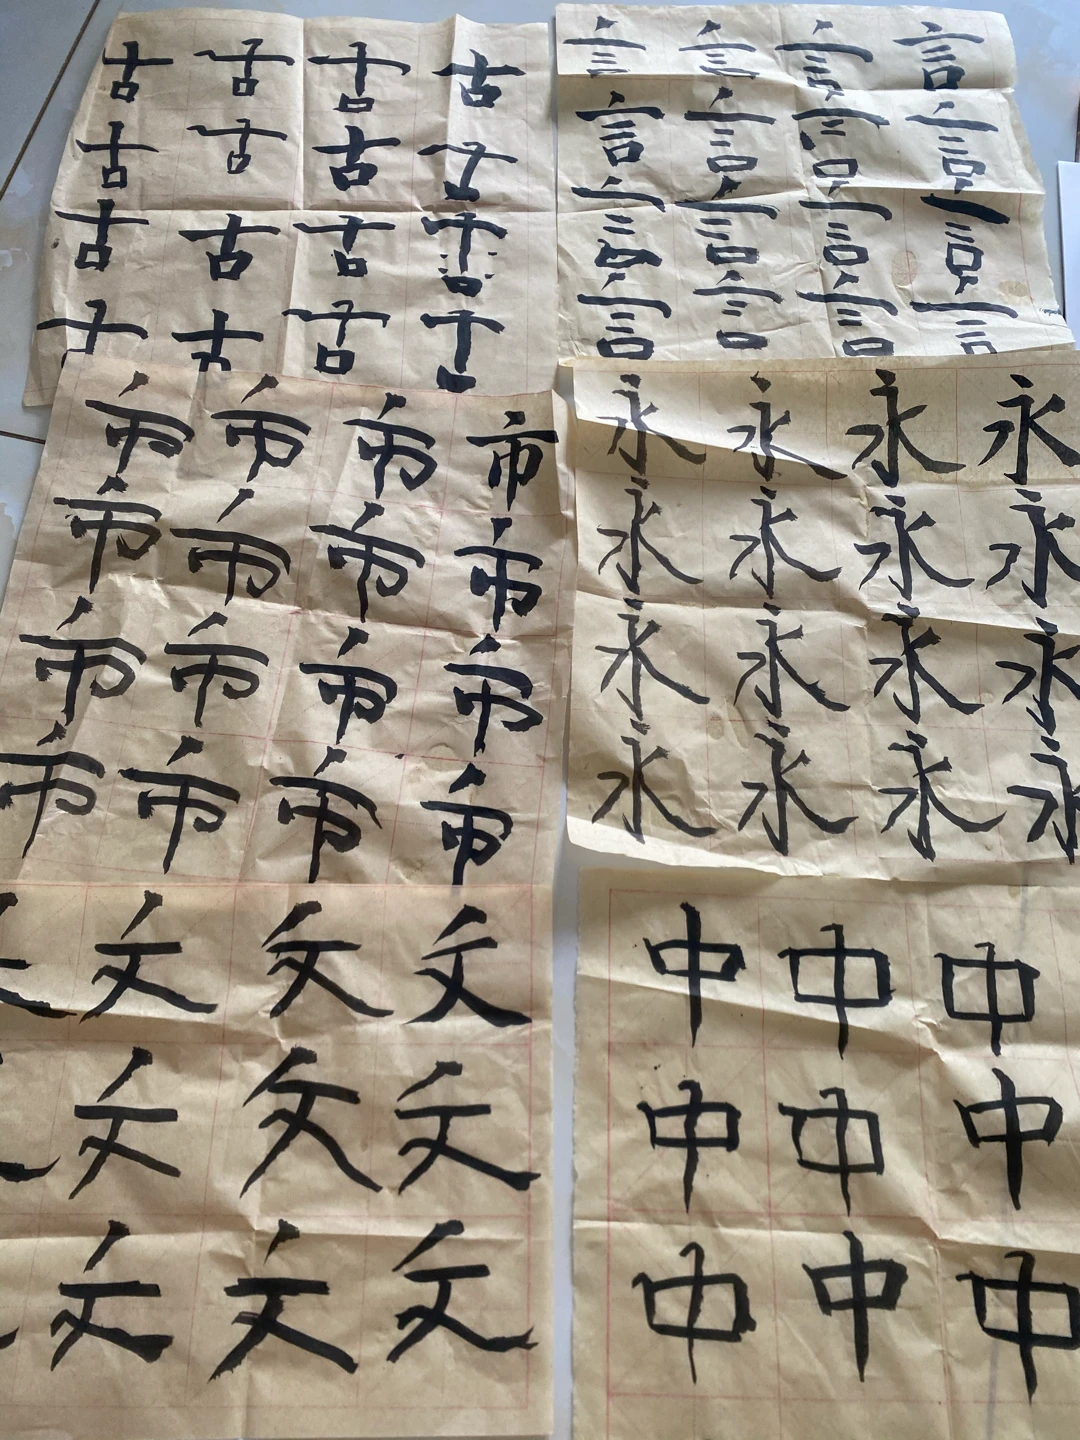 古 古 古 古
古 古 古 古
古 古 古 古
古 古 古 古
言 言 言 言
言 言 言 言
言 言 言 言
言 言 言 言
市 市 市 市
市 市 市 市
市 市 市 市
市 市 市 市
永 永 永 永
永 永 永 永
永 永 永 永
永 永 永 永
文 文 文
文 文 文
文 文 文
中 中 中
中 中 中
中 中 中